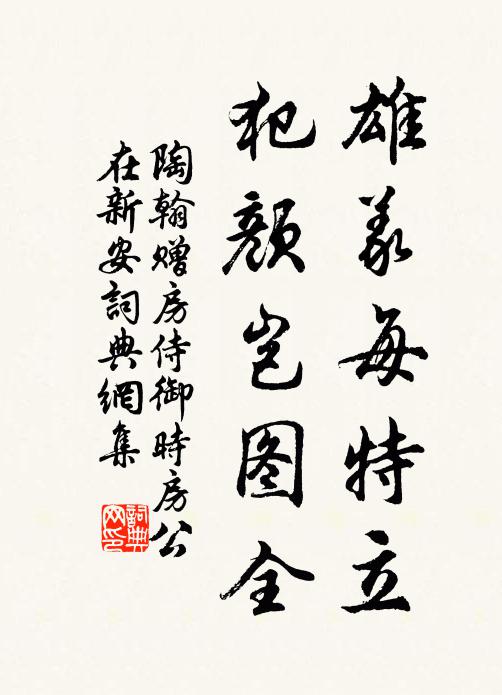 雄义每特立
犯颜岂图全
陶翰赠房侍御时房公
在新安词典网集
詞典
网印